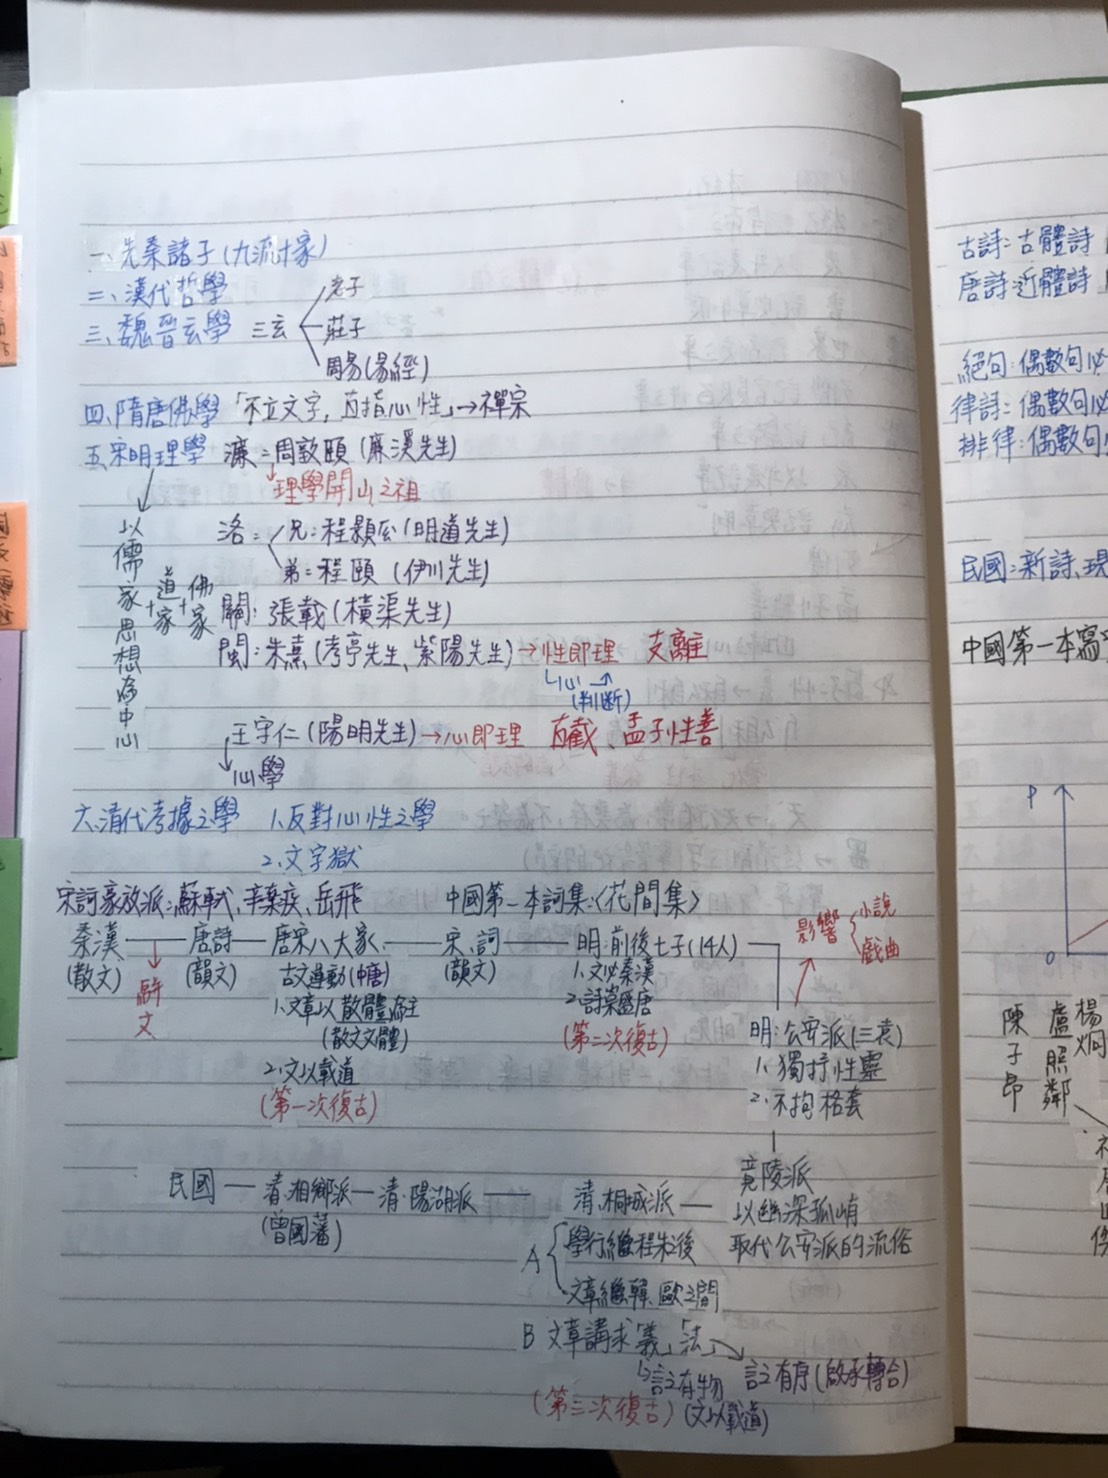 一、先秦諸子(九派十家)
二、漢代哲學
三、魏晉玄學 三玄
老子
莊子
周易(易經)
四、隋唐佛學「不立文字,直指心性」→禪宗
五、宋明理學 濂:周敦頤(廉溪先生)
理學開山之祖
以儒家思想為中心
+道家+佛家
洛:兄:程顥(明道先生)
弟:程頤(伊川先生)
關:張載(橫渠先生)
閩:朱熹(考亭先生、紫陽先生)→性即理 支離
心
(判斷)
王守仁(陽明先生)→心即理 直截、孟子性善
心學
六、清代考據之學 1.反對心性之學
2.文字獄
宋詞豪放派:蘇軾、辛棄疾、岳飛 中國第一本詞集:〈花間集〉
秦漢—唐詩—唐宋八大家—宋、詞—明:前後七子(14人)
影響
小說
戲曲
(散文) (韻文) 古文運動(中唐) (韻文) 1.文必秦漢
駢文
1.文章以散體為主
(散文文體)
2.詩業盛唐
(第二次復古)
2.文以載道
(第一次復古)
明:公安派(三袁)
1.獨抒性靈
2.不拘格套
竟陵派
以幽深孤峭
取代公安派的流俗
民國—清.湘鄉派—清.陽湖派—清.桐城派—
(曾國藩)
A
學行繼程朱後
文章繼韓、歐之間
B 文章講求「義」「法」
言之有物
(文以載道)
言之有序(啟承轉合)
(第三次復古)
古詩:古體詩
唐詩:近體詩
絕句:偶數句必
律詩:偶數句必
排律:偶數句
民國:新詩、現
中國第一本寫
P
0
楊炯
盧照鄰
陳子昂